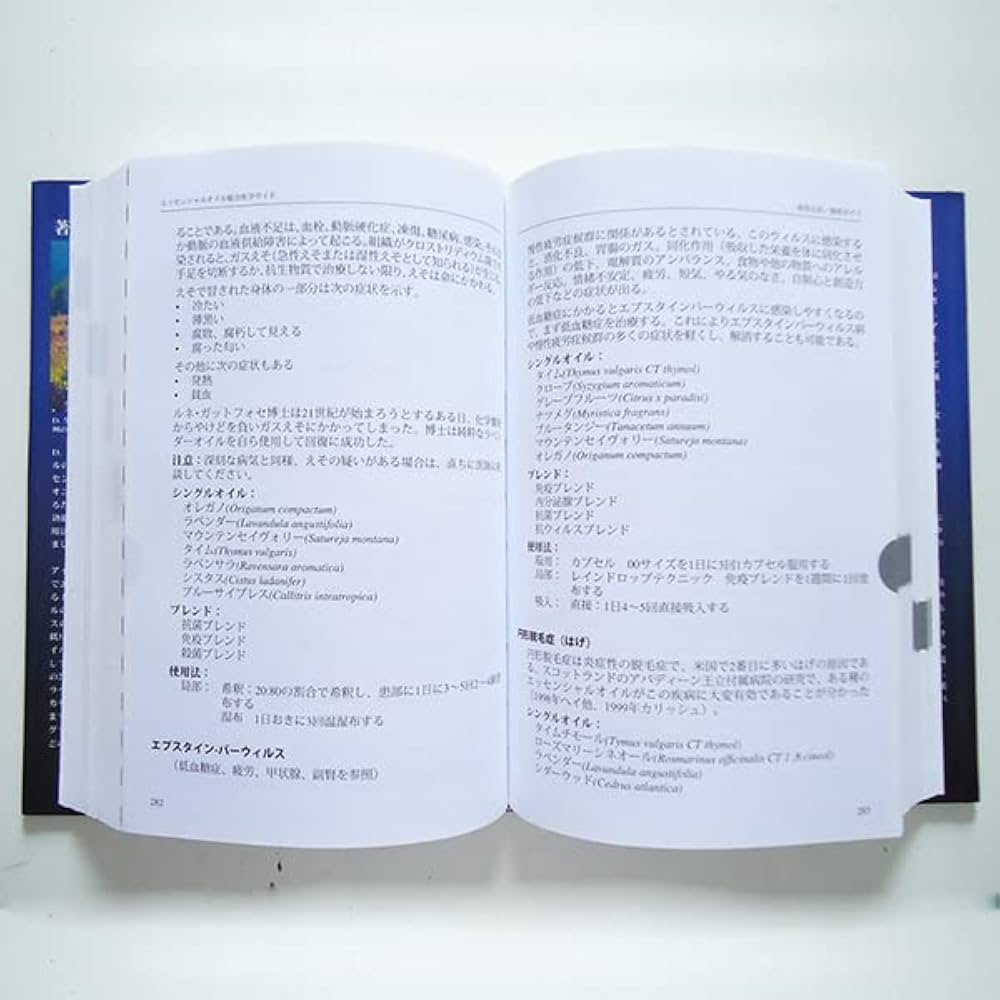 エッセンシャルオイル総合医学ガイド
ることである。血液不足は、血栓、動脈硬化症、凍傷、糖尿病、感染、その
か動脈の血液供給障害によって起こる。組織がクロストリディウム
染されると、ガスえそ（急性えそまたは湿性えそとして知られる）が生じ、
手足を切断するか、抗生物質で治療しない限り、えそは命にかかわる。
えそで冒された身体の一部分は次の症状を示す。
• 冷たい
• 薄黒い
• 腐敗、腐朽して見える
• 腐った匂い
その他に次の症状もある
• 発熱
• 貧血
ルネ・ガットフォセ博士は21世紀が始まろうとするある日、化学
からやけどを負いガスえそにかかってしまった。博士は純粋なラベン
ダーオイルを自ら使用して回復に成功した。
注意：深刻な病気と同様、えその疑いがある場合は、直ちに医師に
談してください。
シングルオイル：
オレガノ(Origanum compactum)
ラベンダー(Lavandula angustifolia)
マウンテンセイヴォリー(Satureja montana)
タイム(Thymus vulgaris)
ラベンサラ(Ravensara aromatica)
シスタス(Cistus ladanifer)
ブルーサイプレス(Callitris intratropica)
ブレンド：
抗菌ブレンド
免疫ブレンド
殺菌ブレンド
使用法：
局部： 希釈：20:80の割合で希釈し、患部に1日に3～5回2～4滴
布する
湿布 1日おきに3回温湿布する
エプスタイン-バーウィルス
（低血糖症、疲労、甲状腺、副腎を参照）
282
慢性疲労症候群に関係があるとされている。このウィルスに感染する
と、消化不良、胃腸のガス、同化作用（吸収した栄養を体に同化させ
る作用）の低下、電解質のアンバランス、食物や他の物質へのアレル
ギー反応、情緒不安定、疲労、短気、やる気のなさ、自制心と創造力
の低下などの症状が出る。
低血糖症にかかるとエプスタインバーウィルスに感染しやすくなるの
で、まず低血糖症を治療する。これによりエプスタインバーウィルス病
や慢性疲労症候群の多くの症状を軽くし、解消することも可能である。
シングルオイル：
タイム(Thymus vulgaris CT thymol)
クローブ(Syzygium aromaticum)
グレープフルーツ(Citrus x paradisi)
ナツメグ(Myristica fragrans)
ブルータンジー(Tanacetum annuum)
マウンテンセイヴォリー(Satureja montana)
オレガノ(Origanum compactum)
ブレンド：
免疫ブレンド
内分泌腺ブレンド
抗菌ブレンド
抗ウィルスブレンド
使用法：
服用： カプセル 00サイズを1日に3回1カプセル服用する
局部： レインドロップテクニック 免疫ブレンドを1週間に1回塗
布する
吸入： 直接：1日4～5回直接吸入する
円形脱毛症（はげ）
円形脱毛症は炎症性の脱毛症で、米国で2番目に多いはげの原因であ
る。スコットランドのアバディーン王立付属病院の研究で、ある種の
エッセンシャルオイルがこの疾病に大変有効であることが分かった
（1998年ヘイ他、1999年カリッシュ）。
シングルオイル：
タイムチモール(Tymus vulgaris CT thymol)
ローズマリーシネオール(Rosmarinus officinalis CT 1.8 cineol)
ラベンダー(Lavandula angustifolia)
シダーウッド(Cedrus atlantica)
283